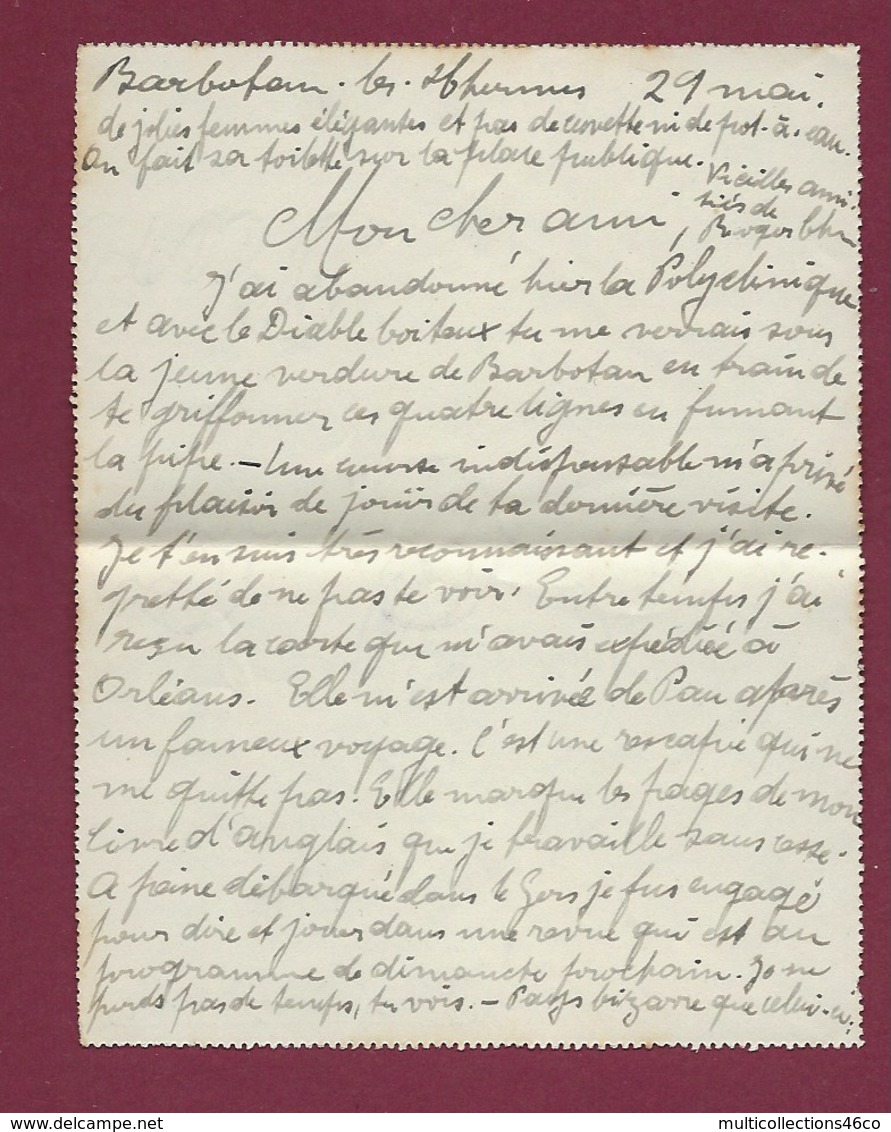 Barbotan-les-Thermes 29 mai.
de jolies femmes élégantes et pas de cuvette ni de pot-à-eau.
On fait sa toilette sur la place publique.
Vieilles ami-
tiés de
Roger
Mon cher ami,
J'ai abandonné hier la Polyclinique
et avec le Diable boiteux tu me verrais sous
la jeune verdure de Barbotan en train de
te griffonner ces quatre lignes en fumant
la pipe. — Une course indispensable m'a privé
du plaisir de jouir de ta dernière visite.
Je t'en suis très reconnaissant et j'ai re-
gretté de ne pas te voir. Entre temps j'ai
reçu la carte que m'avais expédiée à
Orléans. Elle m'est arrivée de Pau après
un fameux voyage. C'est une rescapée qui ne
me quitte pas. Elle marque les pages de mon
livre d'anglais que je travaille sans cesse.
A peine débarqué dans le Gers je fus engagé
pour dire et jouer dans une revue qui est au
programme de dimanche prochain. Je ne
perds pas de temps, tu vois. — Pays bizarre que celui-ci;
www.delcampe.net
multicollections46co